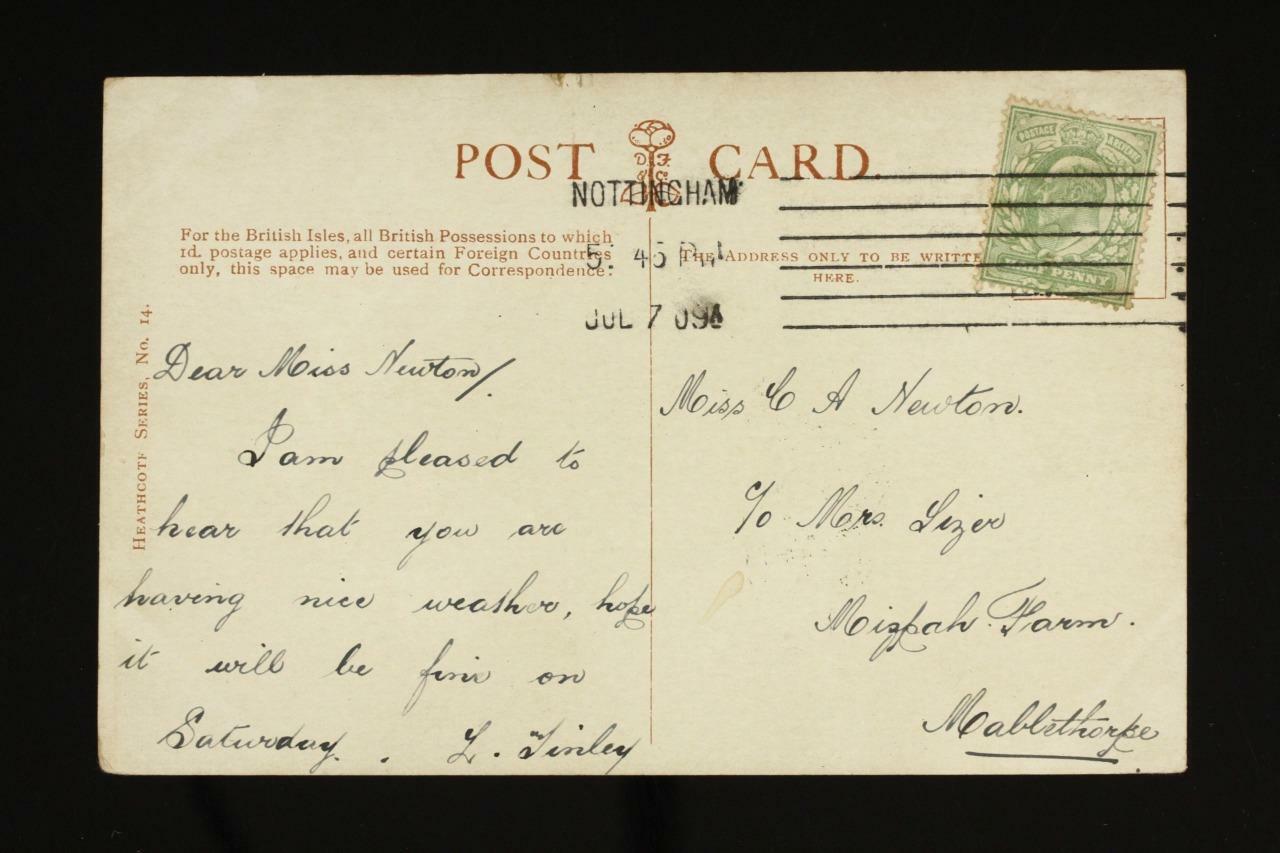 POST CARD.
D. F.
& Co.
NOTTINGHAM
5. 45 PM
JUL 7 09
POSTAGE REVENUE
HALF PENNY
For the British Isles, all British Possessions to which
1d. postage applies, and certain Foreign Countries
only, this space may be used for Correspondence:
THE ADDRESS ONLY TO BE WRITTE
HERE.
HEATHCOTE SERIES, No. 14.
Dear Miss Newton/.
I am pleased to
hear that you are
having nice weather, hope
it will be fine on
Saturday. . L. Tinley
Miss C A Newton.
c/o Mrs. Sizer
Mizpah Farm.
Mablethorpe